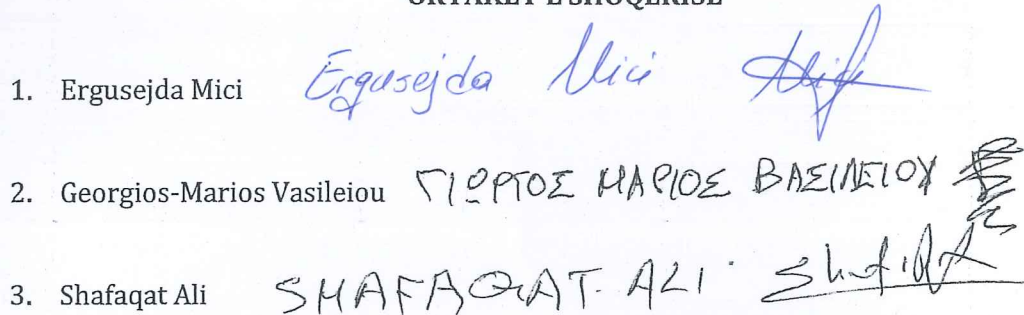 ORTAKËT E SHOQËRISË
1. Ergusejda Mici Ergusejda Mici
2. Georgios-Marios Vasileiou ΓΙΩΡΓΟΣ ΜΑΡΙΟΣ ΒΑΣΙΛΕΙΟΥ
3. Shafaqat Ali SHAFAQAT. ALI